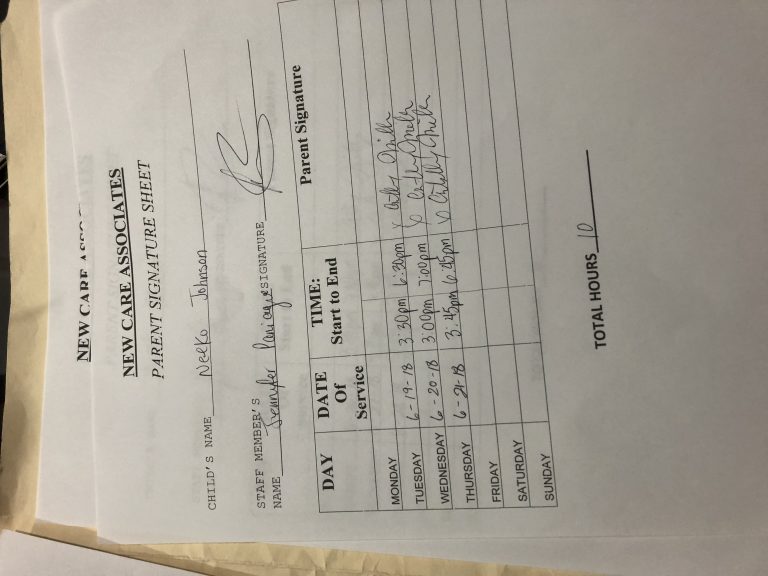 NEW CARE ASSO
NEW CARE ASSOCIATES
PARENT SIGNATURE SHEET
CHILD'S NAME Neeko Johnson
STAFF MEMBER'S
NAME Jennifer SIGNATURE
DAY DATE Of Service TIME: Start to End Parent Signature
MONDAY
TUESDAY 6-19-18 3:30pm 6:30pm x
WEDNESDAY 6-20-18 3:00pm 7:00pm x
THURSDAY 6-21-18 3:45pm 6:45pm x
FRIDAY
SATURDAY
SUNDAY
TOTAL HOURS 10